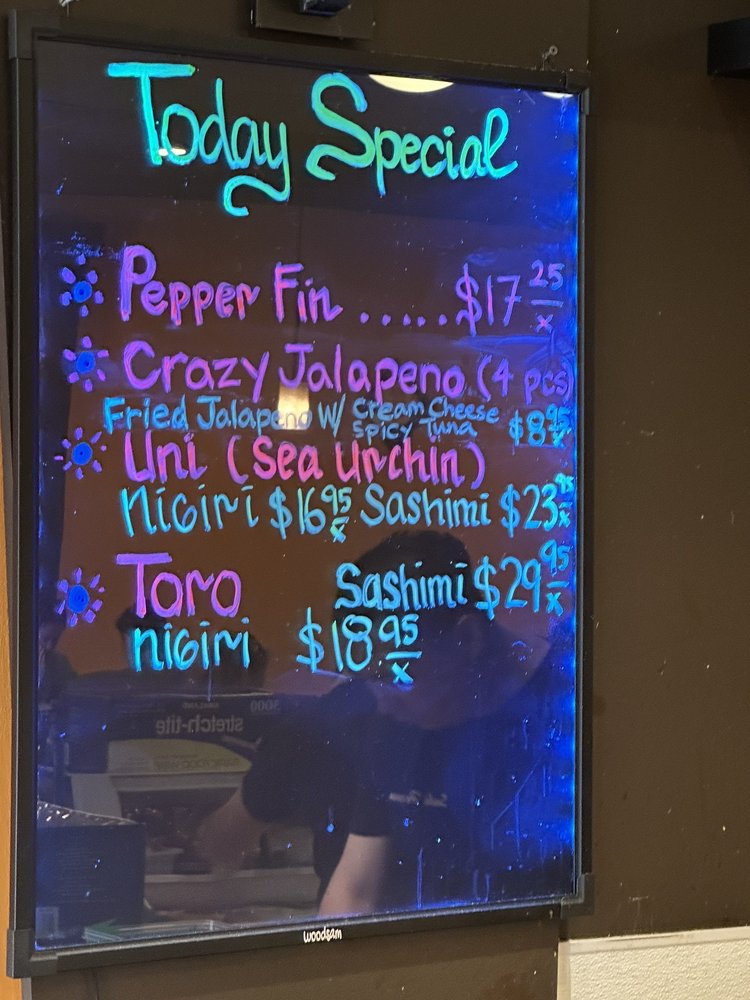 Today Special
Pepper Fin ...... $17 25/x
Crazy Jalapeno (4 pcs)
Fried Jalapeno W/ Cream Cheese Spicy Tuna $8 95/x
Uni (Sea Urchin)
Nigiri $16 95/x Sashimi $23 95/x
Toro Sashimi $29 95/x
Nigiri $18 95/x
3000
stretch-tite
woodsam